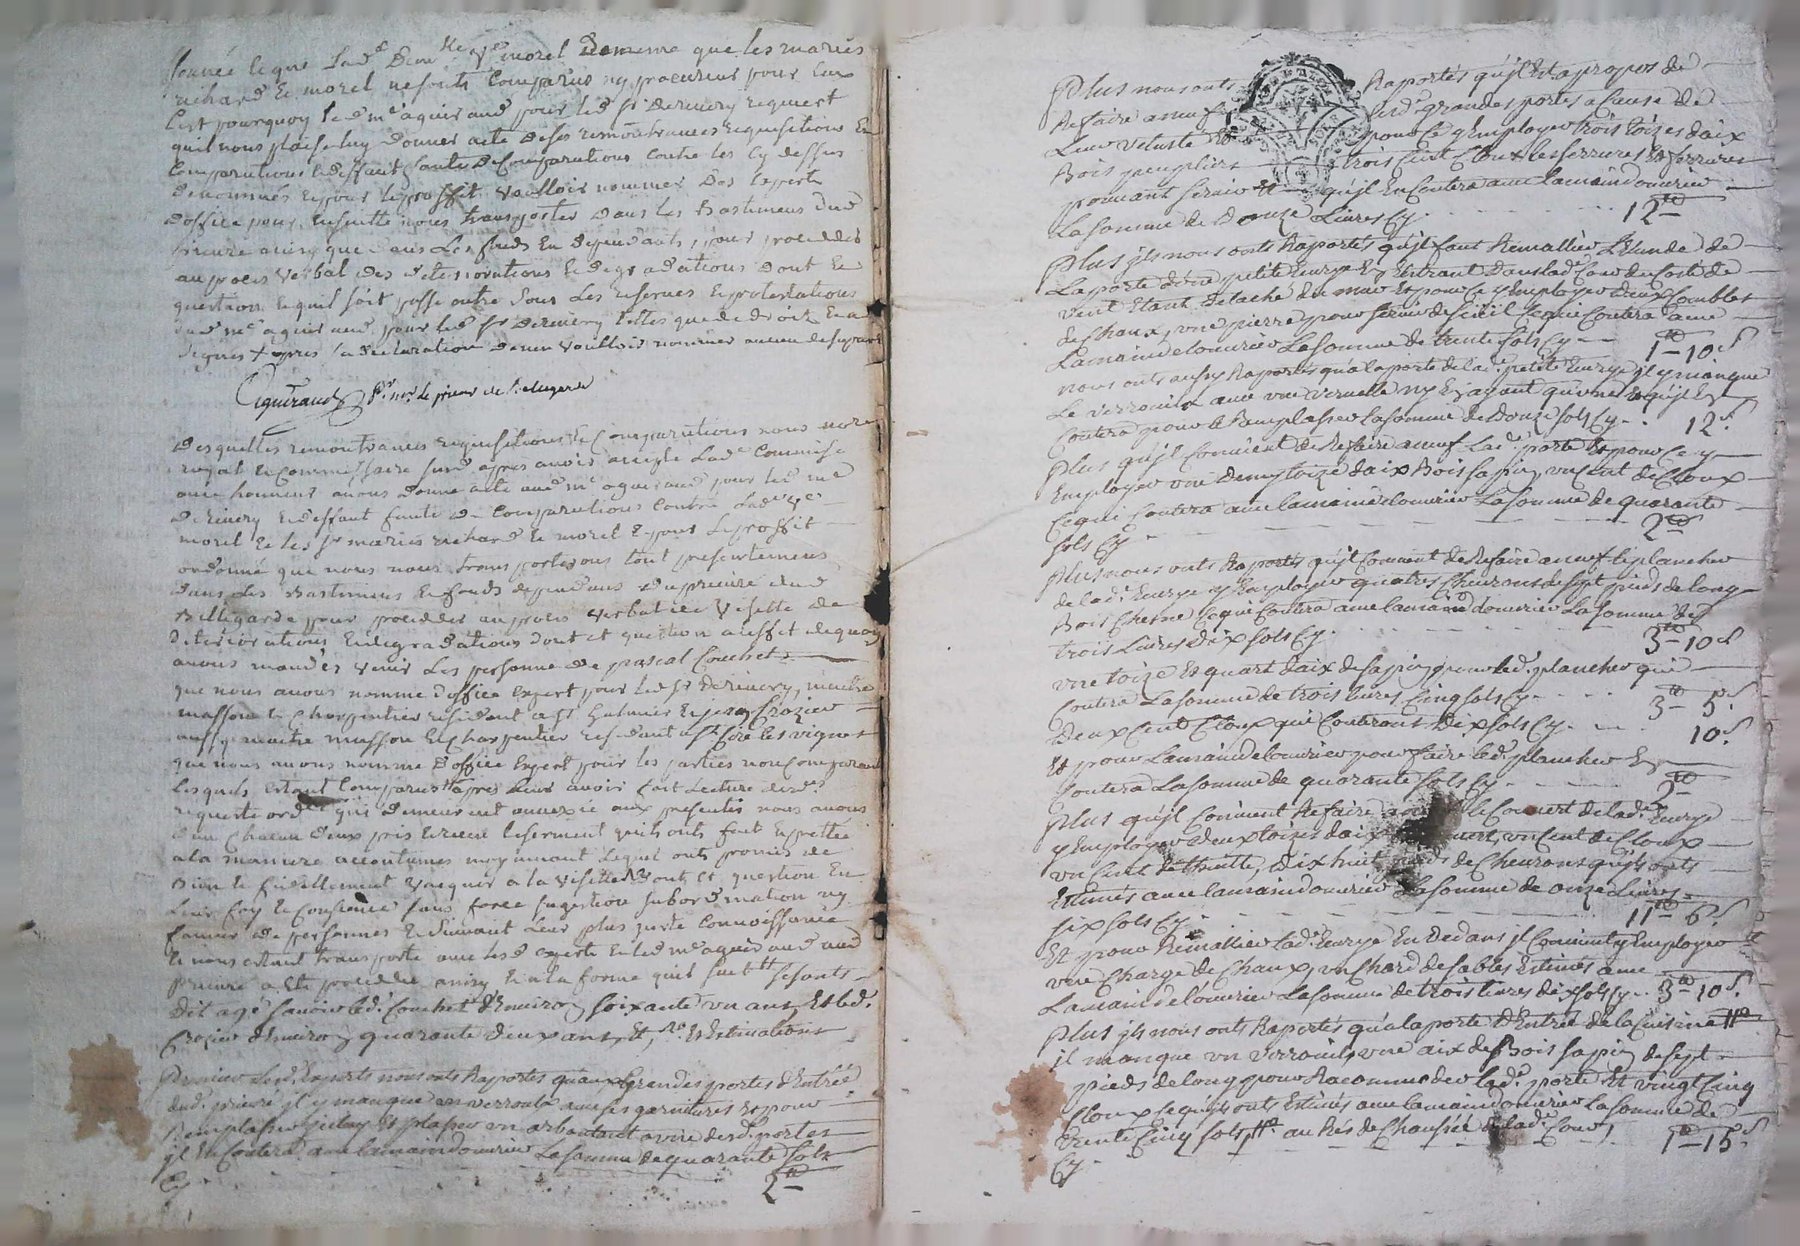 que les mariés
richard & morel
C'est pourquoy led me aguiraud pour led sr Derivery requiert
quil nous plaise luy donner acte de ses remontrances requisitions &
Comparutions & deffaut faute de Comparutions contre les cy dessus
denommés & pour le proffit vouloir nommer Des Experts
d'office pour ensuitte nous transporter Dans les Bastimens dud
prieuré ainsy que dans Les fonds En dependants, pour proceder
au proces verbal des deteriorations & degradations Dont Est
question & quil soit passé outre sous Les reserves & protestations
dud me aguiraud pour led sr Derivery telles que de droit & a
signé
Aguiraud pr
Desquelles remontrances requisitions & Comparutions nous
royal & Commissaire
avec honneur avons donné acte aud me aguiraud pour led
Derivery & deffaut faute de Comparutions contre
morel & les sr mariés richard & morel & pour Le proffit
ordonné que nous nous transporterons tout presentement
dans les Bastimens & fonds dependans du prieuré dud
Bellegarde pour proceder au proces verbal de visitte de
deteriorations & degradations dont est question a leffet de quoy
avons mandés venir Les personne de pascal Couchet
que nous avons nommé d'office expert pour led sr Derivery, maitre
masson & Charpentier residant a St Galmier & jean Crozier
aussy maitre masson & Charpentier residant a St Cire les vignes
que nous avons nommé d'office Expert pour les parties non Comparant
Lesquels estant Comparus apres Leur avoir fait Lecture
requeste ord qui demeurent annexée aux presentes nous avons
d'un Chacun deux pris & receu le serment quils ont fait & pretté
a la maniere accoutumée moyennant Lequel ont promis de
Bien & fidellement vacquer a la visitte dont est question En
Leur foy & Consience sans force sugestion subordination ny
faveur de personnes & suivant Leur plus juste Connoissance
& nous estant transporté avec lesd experts & led me aguiraud aud
prieuré a esté procedé ainsy & a la forme quil suit
Dit agé savoir led. Couchet d'Environ soixante un ans Et led.
Crozier d'Environ quarante deux ans, Et
Premier Lesd. Experts nous ont Raportés qu'aux Grandes portes d'Entrée
dud. prieuré jl y manque un verrouil avec ses garnitures Et pour
Remplasser jceluy Et plasser un arboutant a une desd. portes
jl En Coutera avec la main d'ouvrier La somme de quarante sols
Cy 2tt
Plus nous onts Raportés qu'jl Est a propos de
Refaire a neuf Lesd. grandes portes a Cause de
Leur vetusté Et pour Ce y Employer trois toizes d'aix
Bois peuplier trois Cent Cloux les serrures Et ferrures
pouvant servir Et qu'jl En Coutera avec la main d'ouvrier
La somme de Douze Livres Cy 12tt
Plus jls nous onts Raportés qu'jl faut Remallier L'Etende de
La porte d'une petite Eurye En Entrant Dans lad. Cour du Costé de
vent Etant detaché du mur Et pour Ce y Employer deux Combles
de Chaux, une pierre pour servir de seuil Ce qui Coutera avec
La main de l'ouvrier La somme de trente sols Cy 1tt 10s
nous onts aussy Raportés qu'a la porte de lad. petite Eurye jl y manque
Le verrouil avec une vervelle n'y En ayant qu'une Et qu'jl En
Coutera pour Le Remplasser La somme de Douze sols Cy 12s
Plus qu'jl Convient de Refaire a neuf Lad. porte Et pour Ce y
Employer une Demy toize d'aix Bois sapin, un Cent de Cloux
Ce qui Coutera avec la main de l'ouvrier La somme de quarante
sols Cy 2tt
Plus nous onts Raportés qu'jl Convient de Refaire a neuf le plancher
de lad. Eurye y Employer quatres Cheurons de sept pieds de long
Bois Chesne Ce qui Coutera avec la main d'ouvrier La somme de
trois Livres dix sols Cy 3tt 10s
une toize Et quart d'aix de sapin pour led. plancher qui
Coutera La somme de trois livres Cinq sols Cy 3tt 5s
Deux Cent Cloux qui Couteront dix sols Cy 10s
Et pour La main de l'ouvrier pour faire led. plancher En
Coutera La somme de quarante sols Cy 2tt
Plus qu'jl Convient Refaire le Couvert de lad. Eurye
y Employer deux toizes d'aix un Cent de Cloux
un Cent de thuille, dix huit pieds de Cheurons qu'jls onts
Estimés avec la main d'ouvrier La somme de onze Livres
six sols Cy 11tt 6s
Et pour Remallier Lad. Eurye En Dedans jl Convient y Employer
une Charge de Chaux, un Chard de sables Estimés avec
La main de l'ouvrier La somme de trois livres dix sols Cy 3tt 10s
Plus jls nous onts Raportés qu'a la porte d'Entrée de la Cuisine
jl manque un verrouil, une aix de Bois sapin de sept
pieds de long pour Racommoder lad. porte Et vingt Cinq
Cloux Ce qu'jls onts Estimés avec la main d'ouvrier La somme de
trente Cinq sols au Rés de Chaussée de lad. Cour 1tt 15s
Cy